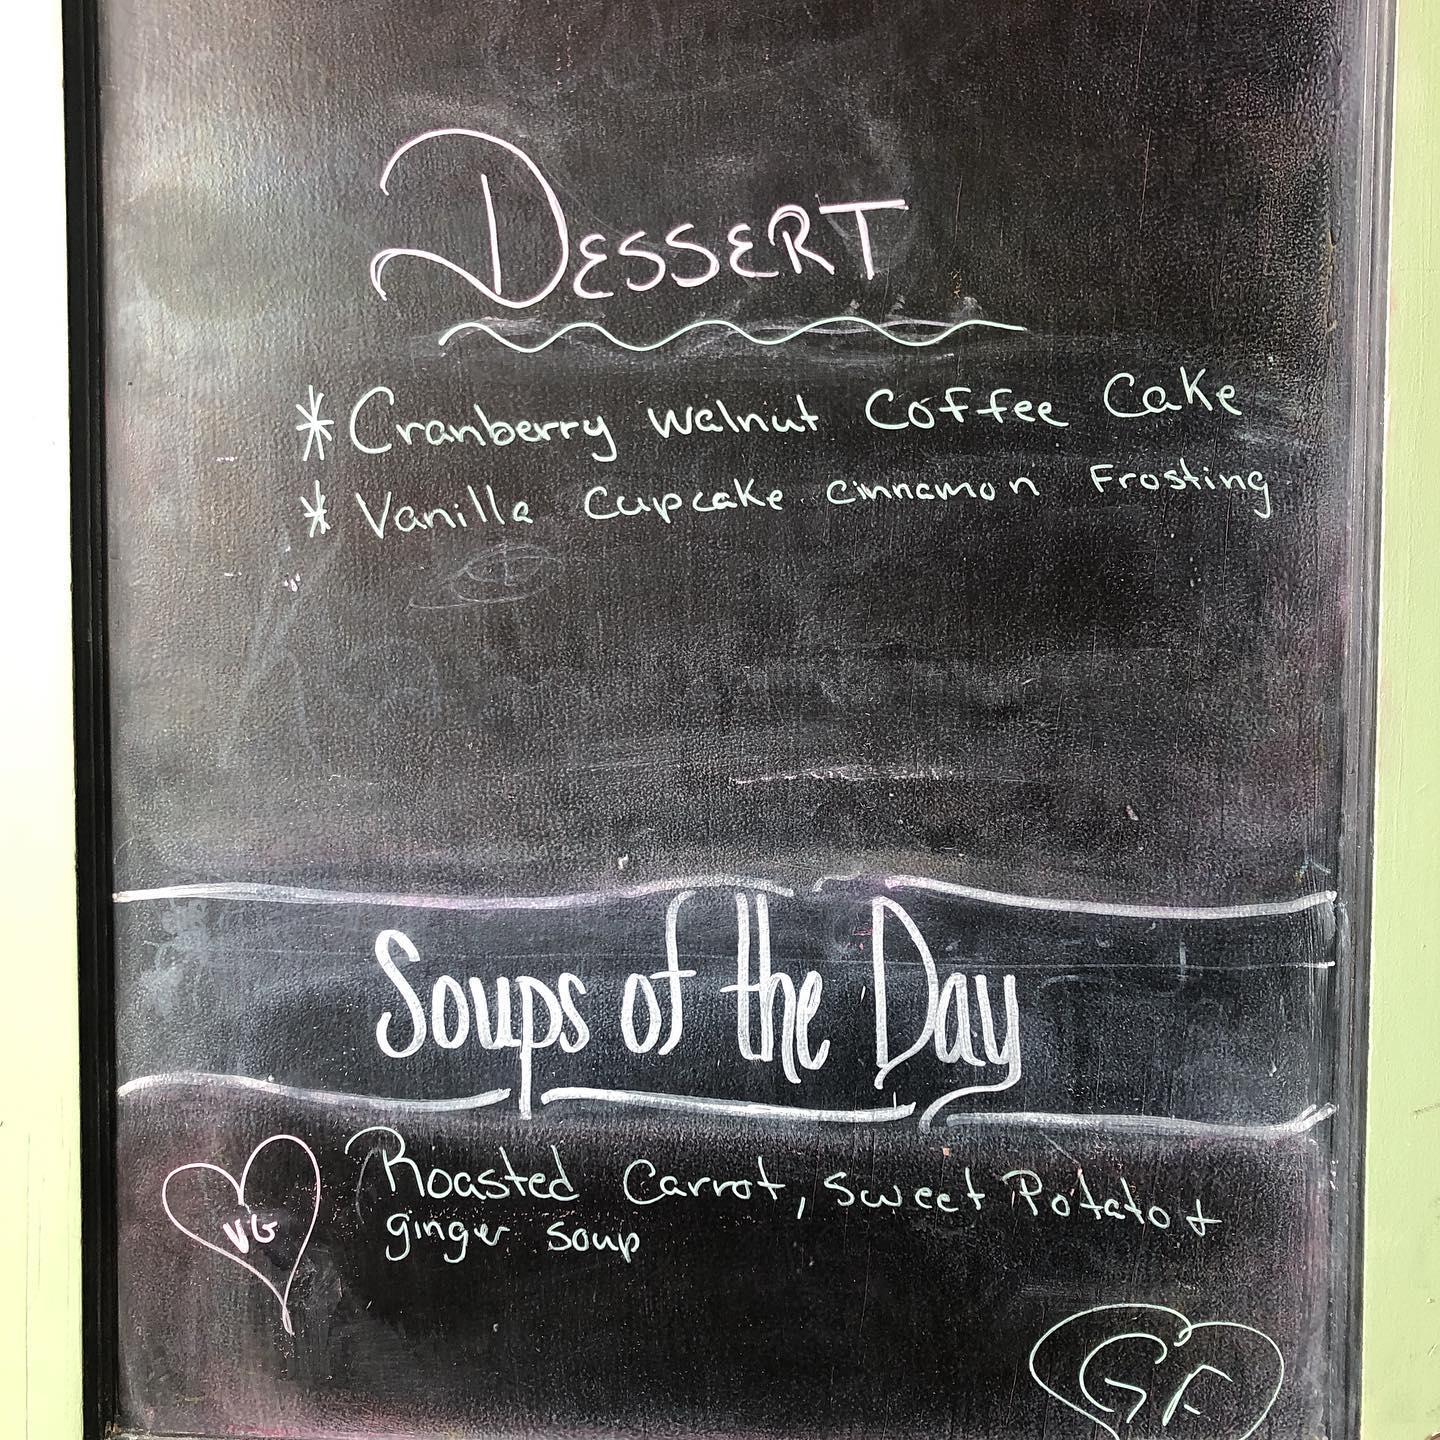 DESSERT
* Cranberry Walnut Coffee Cake
* Vanilla Cupcake cinnamon Frosting
Soups of the Day
VG
Roasted Carrot, Sweet Potato +
ginger soup
GF